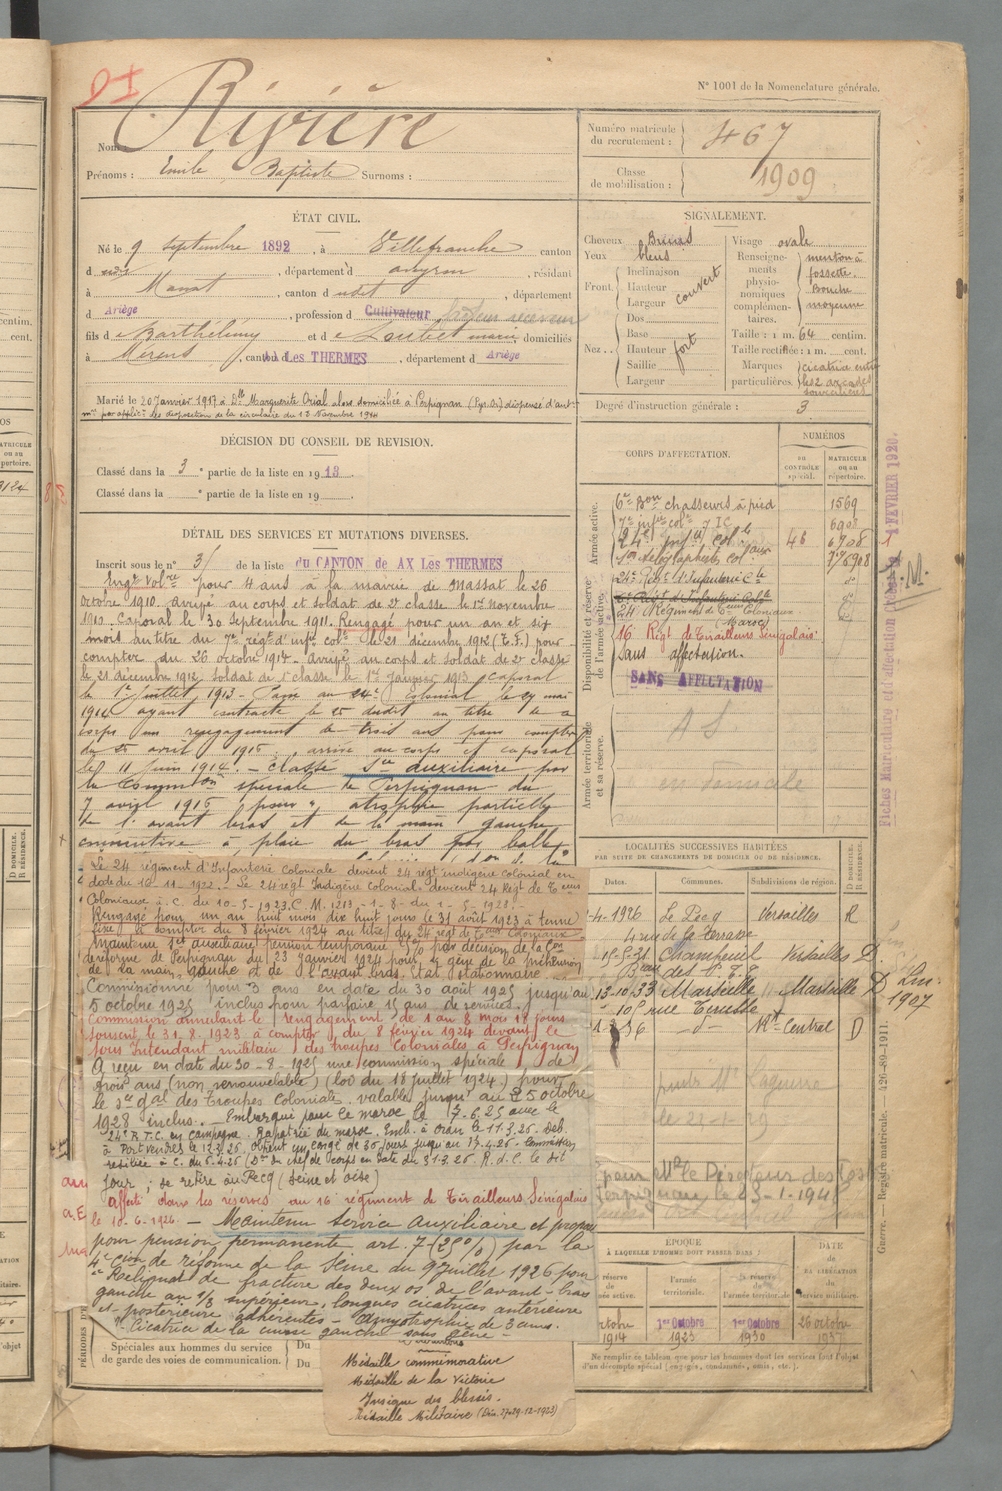 N° 1001 de la Nomenclature générale.
Nom : Rivière
Prénoms : Emile Baptiste Surnoms :
Numéro matricule du recrutement : 467
Classe de mobilisation : 1909
ÉTAT CIVIL.
Né le 9 septembre 1892, à Villefranche canton
d udt, département d aveyron, résidant
à Massat, canton d udit, département
d Ariège, profession d Cultivateur
fils d e Barthélémy et d e Loubet marie, domiciliés
à Merens, canton d Ax Les THERMES, département d Ariège
Marié le 20 Janvier 1917 à Dlle Marguerite Orial alors domiciliée à Perpignan (Pyr. Or.) dispensé d'aut
on par applicon des disposition de la circulaire du 13 Novembre 1914
SIGNALEMENT.
Cheveux Bruns
Yeux bleus
Front. Inclinaison Hauteur Largeur couvert
Nez. Dos Base Hauteur Saillie Largeur fort
Visage ovale
Renseignements physionomiques complémentaires. menton à fossette. Bouche moyenne
Taille : 1 m. 64 centim.
Taille rectifiée : 1 m. cent.
Marques particulières. cicatrice entre les 2 arcades sourcilières
Degré d'instruction générale : 3
DÉCISION DU CONSEIL DE REVISION.
Classé dans la 3e partie de la liste en 1913
Classé dans la e partie de la liste en 19
DÉTAIL DES SERVICES ET MUTATIONS DIVERSES.
Inscrit sous le n° 31 de la liste du CANTON de AX Les THERMES
Engé volre pour 4 ans à la mairie de Massat le 26
octobre 1910. arrivé au corps et soldat de 2e classe le 1er novembre
1910. Caporal le 30 septembre 1911. Rengagé pour un an et six
mois au titre du 7e régt d'infie colle le 21 décembre 1912 (E.F.) pour
compter du 26 octobre 1914. arrivé au corps et soldat de 2e classe
le 21 décembre 1912 soldat de 1e classe le 1er Janvier 1913 Caporal
le 1er juillet 1913. Passé au 24e Colonial le 27 mai
1914 ayant contracté le 25 dudit au titre de ce
corps un rengagement de trois ans pour compter
du 25 avril 1916, arrivé au corps et caporal
le 11 juin 1914. Classé Sce auxiliaire par
la Common spéciale de Perpignan du
7 avril 1916 pour " atrophie partielle
de l'avant bras et de la main gauche
consécutive à plaie du bras par balle
Le 24 régiment d'Infanterie Coloniale devient 24 régt indigène Colonial en
date du 10-11-1922. Le 24 régt Indigène Colonial devient 24 Régt de Teurs
Coloniaux à C. du 10-5-1923. C. M. 1213-1-8- du 1-5-1923.
Rengagé pour un an huit mois dix huit jours le 31 août 1923 à terme
fixe à compter du 8 février 1924 au titre du 24 régt de Teurs Coloniaux
Maintenu Sce auxiliaire pension temporaire % par décision de la Con
de réforme de Perpignan du 23 janvier 1924 pour gêne de la préhension
de la main gauche et de l'avant bras. Etat stationnaire.
Commissionné pour 3 ans en date du 30 août 1925 jusqu'au
5 octobre 1925 inclus pour parfaire 15 ans de services.
Commission annulant le rengagement de 1 an 8 mois 18 jours
souscrit le 31.8.1923 à compter du 8 février 1924 devant le
sous Intendant militaire des troupes Coloniales à Perpignan
A reçu en date du 30-8-1925 une commission spéciale de
trois ans (non renouvelable) (loi du 18 juillet 1924.) pour
le Sce gal des Troupes Coloniales valable jusqu'au 25 octobre
1928 inclus. Embarqué pour le maroc le 17-6-25 avec le
24e R.T.C. en campagne. Rapatrié du maroc. Emb. à Oran le 11.3.26. Deb.
à Port Vendres le 12.3.26. Obtient un congé de 30 jours jusqu'au 17.4.26. Commission
résiliée à C. du 5.4.26 (Don du chef de corps en date du 31.3.26. R.d.C. le dit
jour ; se retire au Pecq (Seine et Oise)
Affecté dans les réserves au 16 régiment de Tirailleurs Sénégalais
le 10-6-1926. — Maintenu service auxiliaire et proposé
pour pension permanente art. 7 (25%) par la
4e Cion de réforme de la Seine du 9 juillet 1926 pour
Reliquat de fracture des deux os de l'avant-bras
gauche au 1/3 supérieur, longues cicatrices antérieure
et postérieure adhérentes - Amyotrophie de 3 cms.
2° Cicatrice de la cuisse gauche sans gêne -
Médaille commémorative
Médaille de la Victoire
Insigne des blessés.
Médaille Militaire (Déc. 27-29-12-1923)
Spéciales aux hommes du service de garde des voies de communication.
Du
Du
CORPS D'AFFECTATION.
NUMÉROS
AU CONTRÔLE spécial.
MATRICULE ou au répertoire.
Armée active.
6e Bon chasseurs à pied 1569
7e infie cole 7 IC 6908
24e infie cole 46 6908
24e Régt d'Infanterie Cle
24 Régiment de Teurs Coloniaux (Maroc)
Disponibilité et réserve de l'armée active.
16 Régt de Tirailleurs Sénégalais.
Sans affectation.
SANS AFFECTATION
Armée territoriale et sa réserve.
A S
en domicile
LOCALITÉS SUCCESSIVES HABITÉES
PAR SUITE DE CHANGEMENTS DE DOMICILE OU DE RÉSIDENCE.
Dates. Communes. Subdivisions de région. D DOMICILE. R RÉSIDENCE.
-4-1926 Le Pecq Versailles R
4 rue de la Terrasse
Versailles D
13-10-33 Marseille Marseille D
rue
1-3-36 -d- Rt Central D
1907
pour Mr le Directeur des
Perpignan, le 23-1-1941
EPOQUE
À LAQUELLE L'HOMME DOIT PASSER DANS :
DATE de LA LIBÉRATION du service militaire.
réserve de l'armée active.
l'armée territoriale.
la réserve de l'armée territoriale.
octobre 1914
1er Octobre 1933
1er Octobre 1930
26 octobre 1937
Ne remplir ce tableau que pour les hommes dont les services font l'objet d'un décompte spécial (engagés, condamnés, omis, etc.).
Fiches Matriculaire et d'affectation 1 FÉVRIER 1920.
Guerre. — Registre matricule. 426-89-1911.